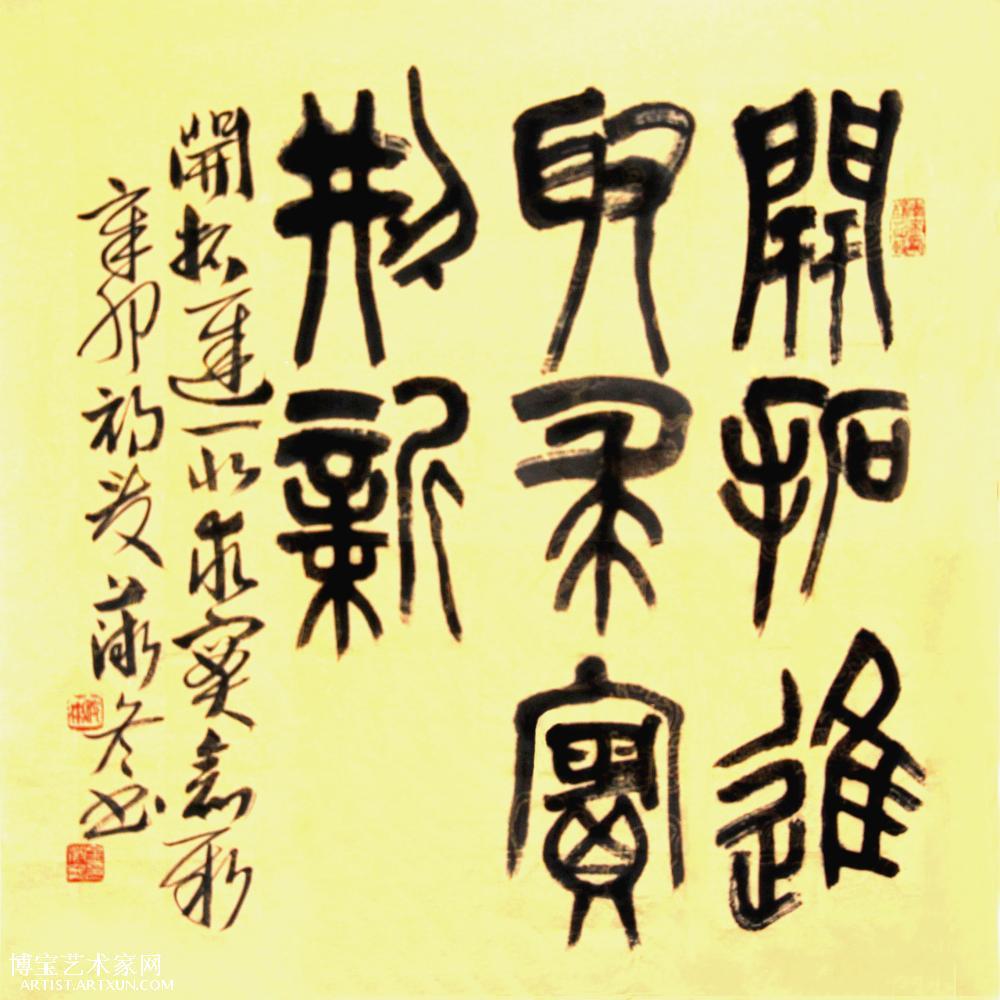 開拓進
取求實
刱新
開拓進取求實創新
辛卯初夏
博宝艺术家网
ARTIST.ARTXUN.COM